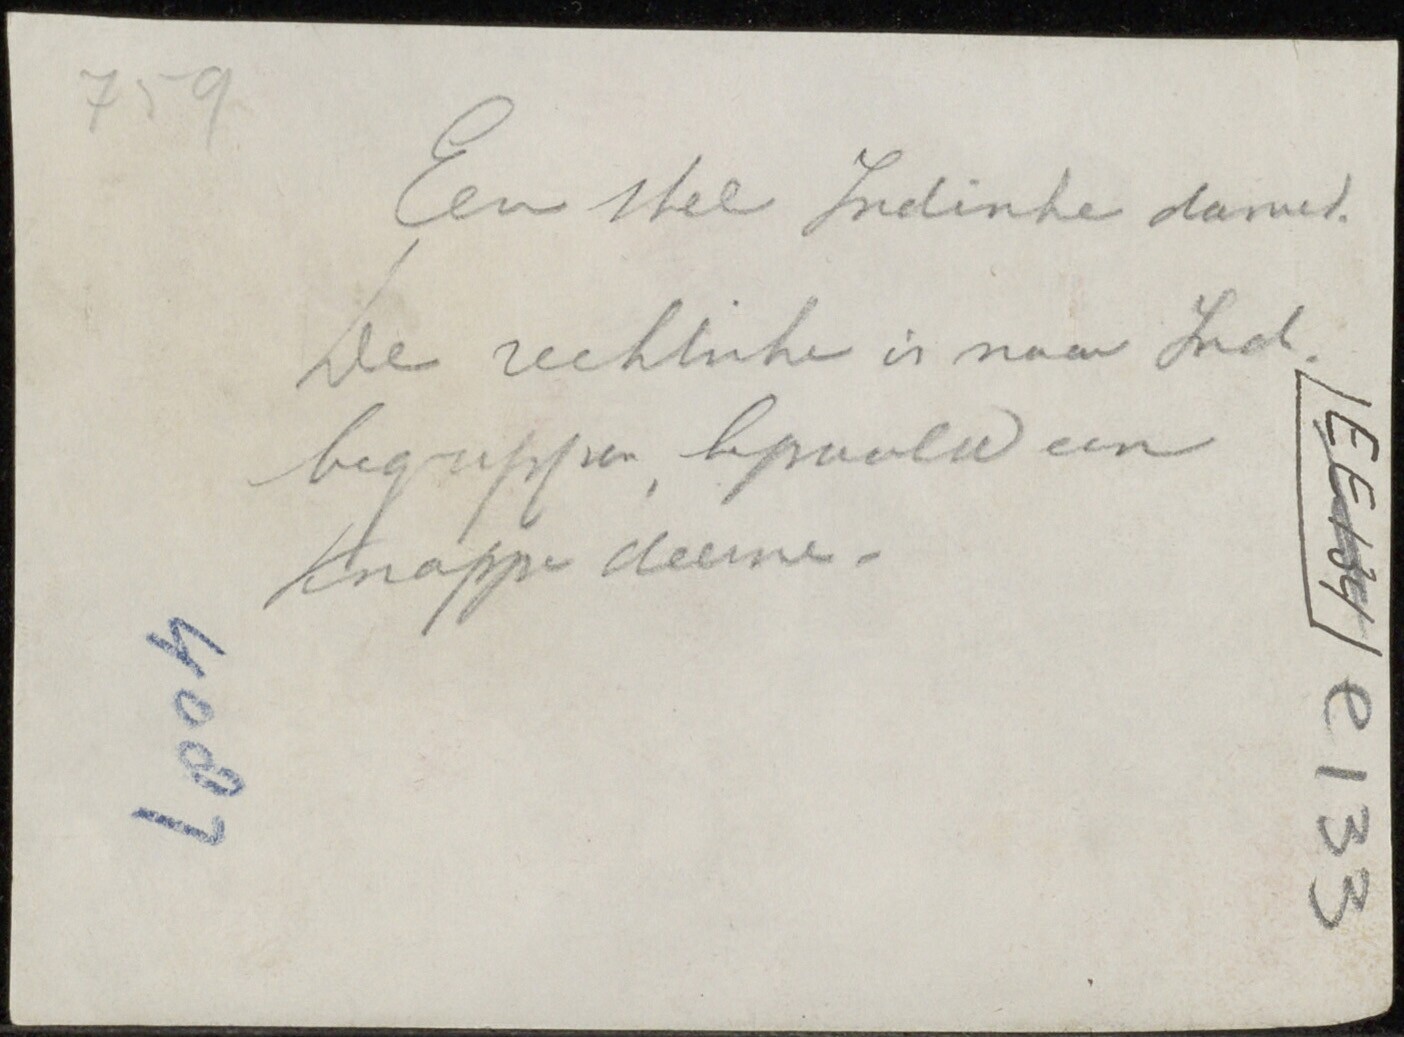 759
Een stel Indische dames.
De rechtsche is naar Ind.
begrippen, bepaald een
knappe deerne.
4087
e133